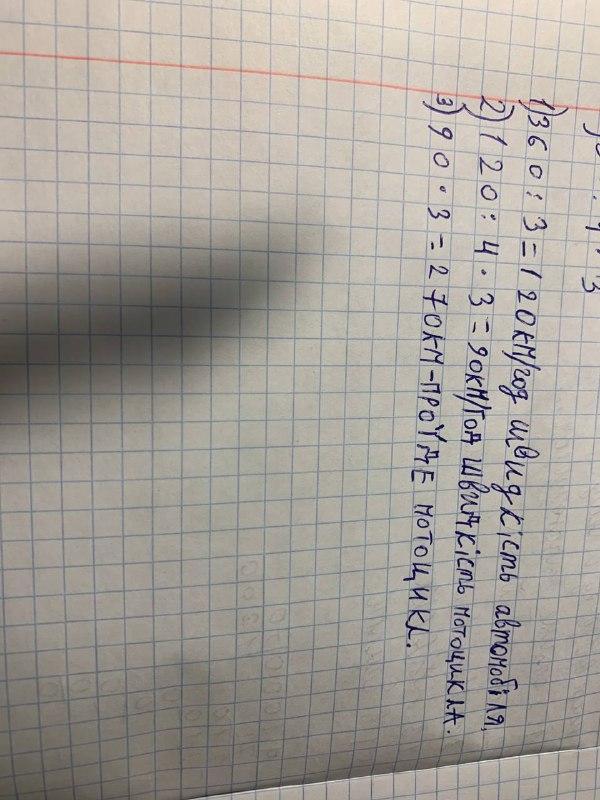 1) 360 : 3 = 120км/год швидкість автомобіля,
2) 120 : 4 · 3 = 90км/год швидкість мотоцикла.
3) 90 · 3 = 270км-проїде мотоцикл.